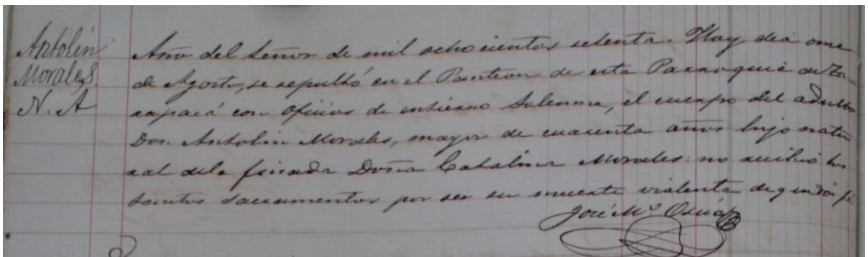 Antolin
Morales
N. A
Año del Señor de mil ochocientos setenta. Hoy dia once
de Agosto, se sepultó en el Panteon de esta Parroquia de Ta-
rapacá con oficios de entierro solemne, el cuerpo del adulto
Don Antolin Morales, mayor de cuarenta años hijo natu
ral dela finada Doña Catalina Morales: no recibio los
santos sacramentos por ser su muerte violenta de que doi fé
José Mª